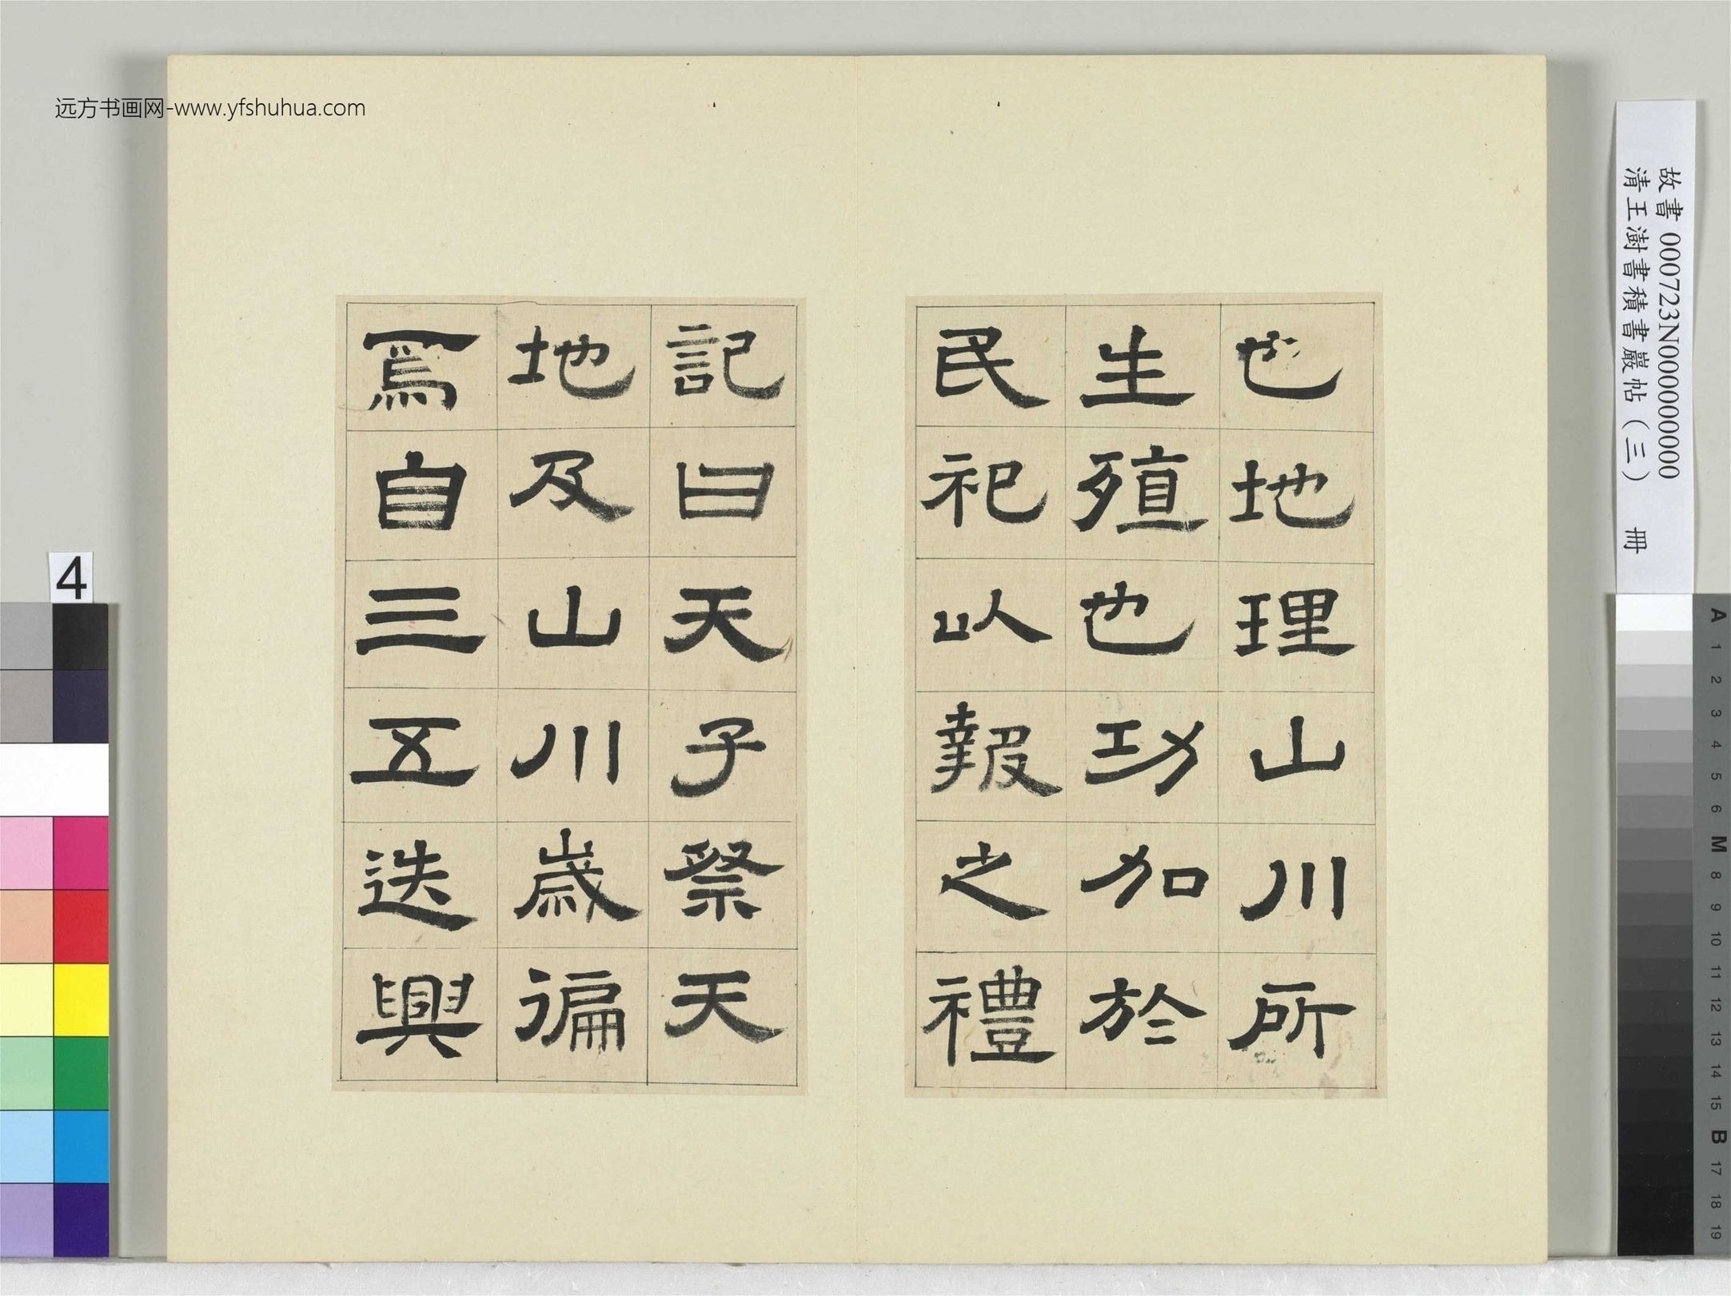 也地理山川所
生殖也功加於
民祀以報之禮
記曰天子祭天
地及山川歲徧
焉自三五迭興
远方书画网-www.yfshuhua.com
故書 000723N000000000
清王澍書積書巖帖(三) 冊
4
A
1
2
3
4
5
6
M
8
9
10
11
12
13
14
15
B
17
18
19